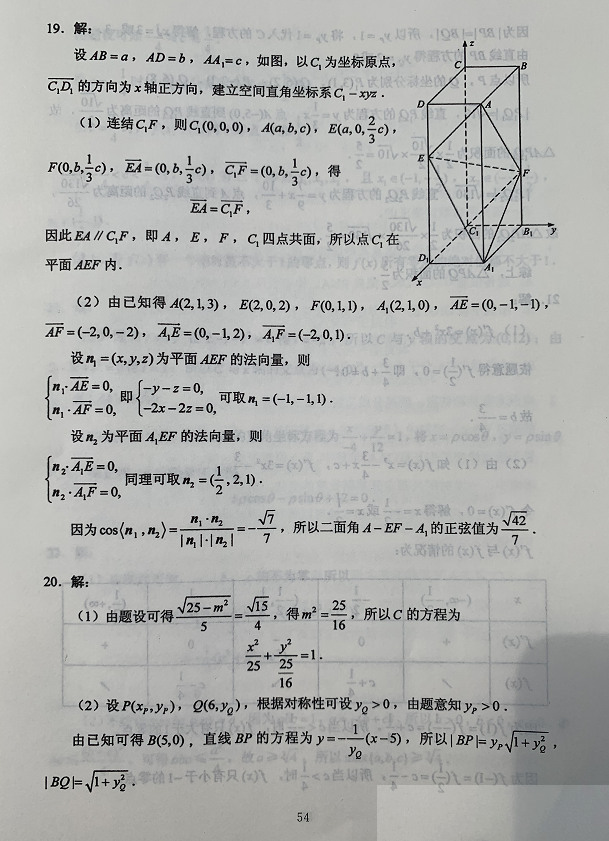 19. 解:
设 AB = a, AD = b, AA₁ = c, 如图, 以 C₁ 为坐标原点,
$\overrightarrow{C_1D_1}$ 的方向为 x 轴正方向, 建立空间直角坐标系 C₁ − xyz.
(1) 连结 C₁F, 则 C₁(0,0,0), A(a,b,c), E(a,0,$\frac{2}{3}$c),
F(0,b,$\frac{1}{3}$c), $\overrightarrow{EA}$ = (0,b,$\frac{1}{3}$c), $\overrightarrow{C_1F}$ = (0,b,$\frac{1}{3}$c), 得
$\overrightarrow{EA}$ = $\overrightarrow{C_1F}$,
因此 EA // C₁F, 即 A, E, F, C₁ 四点共面, 所以点 C₁ 在
平面 AEF 内.
z
C
B
D
A
E
F
C₁
B₁
y
D₁
A₁
x
(2) 由已知得 A(2,1,3), E(2,0,2), F(0,1,1), A₁(2,1,0), $\overrightarrow{AE}$ = (0,−1,−1),
$\overrightarrow{AF}$ = (−2,0,−2), $\overrightarrow{A_1E}$ = (0,−1,2), $\overrightarrow{A_1F}$ = (−2,0,1).
设 n₁ = (x,y,z) 为平面 AEF 的法向量, 则
$\begin{cases} n_1 \cdot \overrightarrow{AE} = 0, \\ n_1 \cdot \overrightarrow{AF} = 0, \end{cases}$ 即 $\begin{cases} -y - z = 0, \\ -2x - 2z = 0, \end{cases}$ 可取 n₁ = (−1,−1,1).
设 n₂ 为平面 A₁EF 的法向量, 则
$\begin{cases} n_2 \cdot \overrightarrow{A_1E} = 0, \\ n_2 \cdot \overrightarrow{A_1F} = 0, \end{cases}$ 同理可取 n₂ = ($\frac{1}{2}$,2,1).
因为 cos⟨n₁,n₂⟩ = $\frac{n_1 \cdot n_2}{|n_1| \cdot |n_2|}$ = −$\frac{\sqrt{7}}{7}$, 所以二面角 A − EF − A₁ 的正弦值为 $\frac{\sqrt{42}}{7}$.
20. 解:
(1) 由题设可得 $\frac{\sqrt{25-m^2}}{5}$ = $\frac{\sqrt{15}}{4}$, 得 m² = $\frac{25}{16}$, 所以 C 的方程为
$\frac{x^2}{25} + \frac{y^2}{\frac{25}{16}} = 1$.
(2) 设 P(x_P, y_P), Q(6, y_Q), 根据对称性可设 y_Q > 0, 由题意知 y_P > 0.
由已知可得 B(5,0), 直线 BP 的方程为 y = −$\frac{1}{y_Q}$(x − 5), 所以 |BP| = y_P$\sqrt{1+y_Q^2}$,
|BQ| = $\sqrt{1+y_Q^2}$.
54